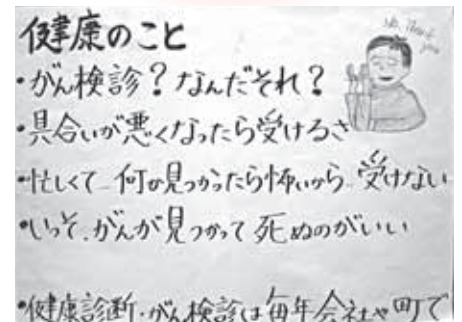 健康のこと
No, Thank you
・がん検診?なんだそれ?
・具合いが悪くなったら受けるさ
・忙しくて 何か見つかったら怖いから 受けない
・いっそ、がんが見つかって死ぬのがいい
・健康診断・がん検診は毎年会社や町で